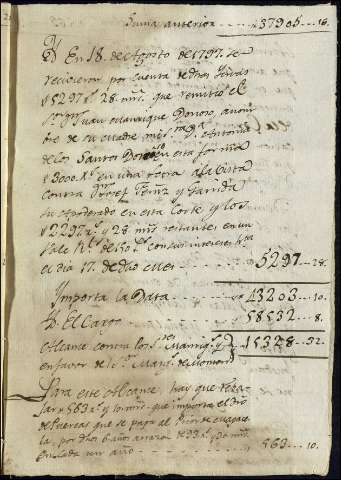 Suma anterior ---- 37905 .. 16.
En 18. de Agosto de 1797. se
recivieron por cuenta de dhos
5297 r.s 28. mrs. que remitió el
Sr. Dn. Juan Manrique Donoso, a nom
bre de su madre mi Sra. Da. Antonia
de los Santos Donoso en esta forma
3000 r.s en una letra a la vista
contra Dn. Josef y Garrida
su Apoderado en esta Corte y los
2297 r.s y 28 mrs restantes en un
Vale Rl. de 150 ps. con sus intereses hta
el dia 17. de dho mes ---- 5297 .. 28.
Importa la Data ---- 43203 .. 10.
El Cargo ---- 58532 .. 8.
Alcance contra los Sres. 15328 .. 32.
en favor de la Sra. Marqa. de
Para este Alcance hay que reba
jar 563 r.s y 10 mrs. que importa el
de que se pago al
la, por dhos 6 años a razon de 93 r.s
en cada un año ---- 563 .. 10.